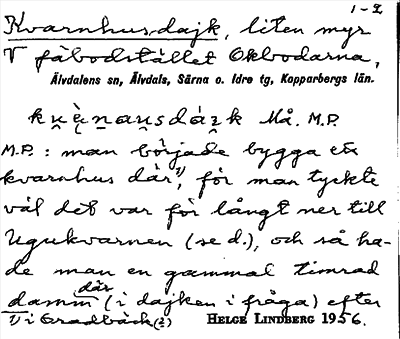 1-2
Kvarnhusdajk, liten myr
V fäbodstället Okbodarna,
Älvdalens sn, Älvdals, Särna o. Idre tg, Kopparbergs län.
Må. M.P.
M.P.: man började bygga ett
kvarnhus där¹⁾, för man tyckte
väl det var för långt ner till
Ugukvarnen (se d.), och så ha-
de man en gammal timrad
damm där (i dajken i fråga) efter
1) i Gradbäck (2)
HELGE LINDBERG 1956.